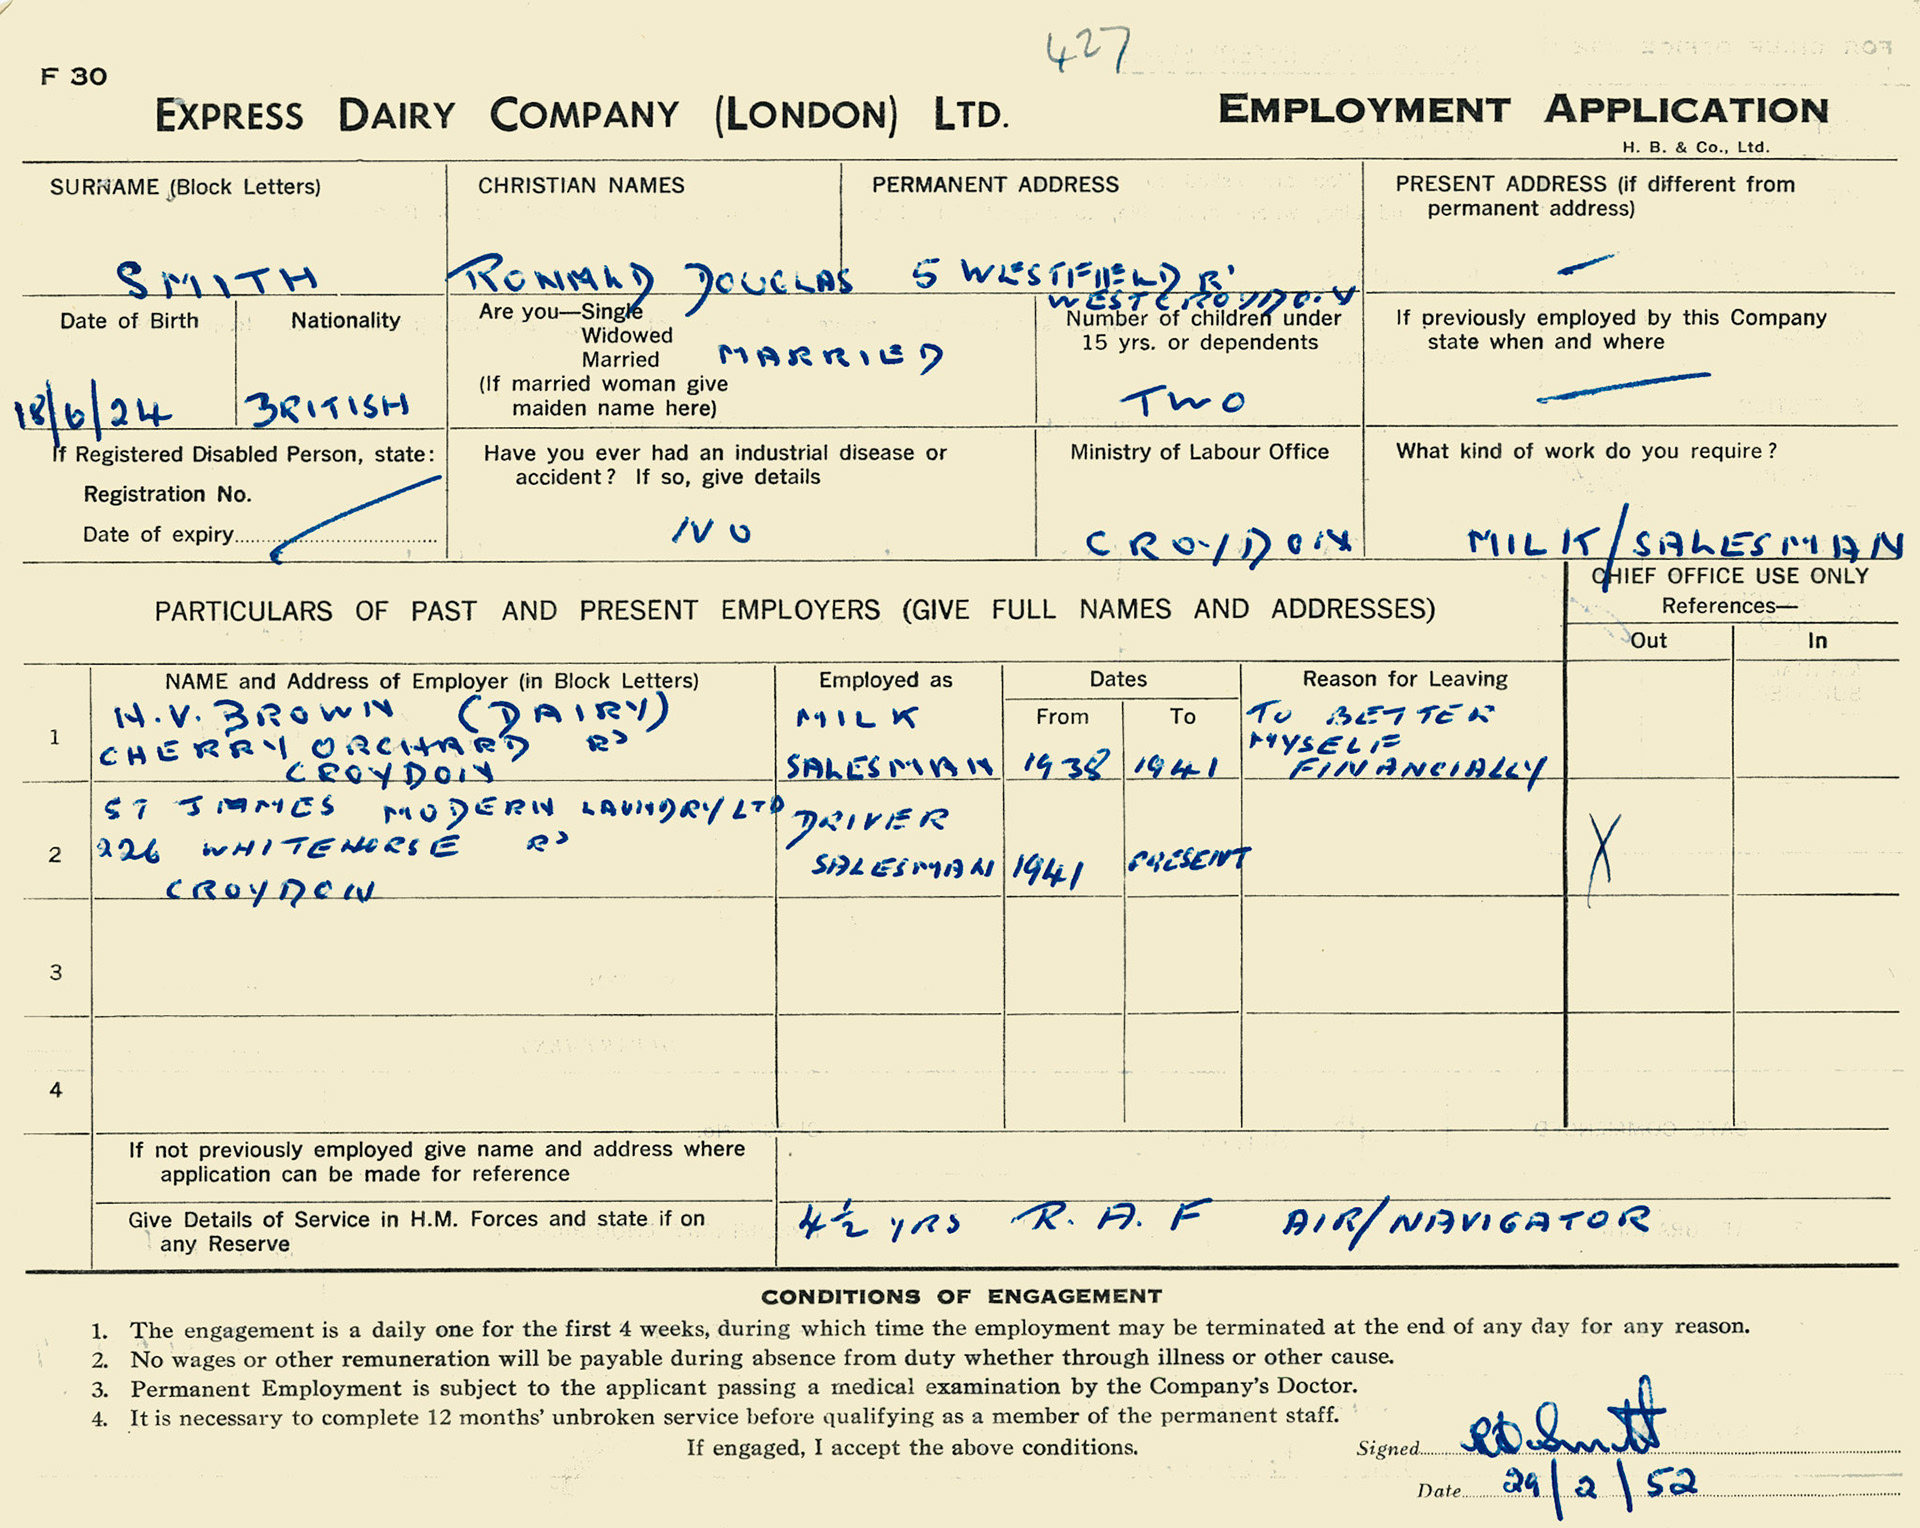 427
F 30
EXPRESS DAIRY COMPANY (LONDON) LTD.
EMPLOYMENT APPLICATION
H. B. & Co., Ltd.
SURNAME (Block Letters)
SMITH
CHRISTIAN NAMES
RONALD DOUGLAS
PERMANENT ADDRESS
5 WESTFIELD Rd
WEST CROYDON
PRESENT ADDRESS (if different from
permanent address)
—
Date of Birth
18/6/24
Nationality
BRITISH
Are you—Single
Widowed
Married MARRIED
(If married woman give
maiden name here)
Number of children under
15 yrs. or dependents
TWO
If previously employed by this Company
state when and where
—
If Registered Disabled Person, state:
Registration No.
Date of expiry
Have you ever had an industrial disease or
accident? If so, give details
NO
Ministry of Labour Office
CROYDON
What kind of work do you require?
MILK/SALESMAN
PARTICULARS OF PAST AND PRESENT EMPLOYERS (GIVE FULL NAMES AND ADDRESSES)
CHIEF OFFICE USE ONLY
References—
Out In
NAME and Address of Employer (in Block Letters) Employed as Dates Reason for Leaving
From To
1
H.V. BROWN (DAIRY)
CHERRY ORCHARD RD
CROYDON
MILK
SALESMAN
1938 1941
TO BETTER
MYSELF
FINANCIALLY
2
ST JAMES MODERN LAUNDRY LTD
226 WHITEHORSE RD
CROYDON
DRIVER
SALESMAN
1941 PRESENT
X
3
4
If not previously employed give name and address where
application can be made for reference
Give Details of Service in H.M. Forces and state if on
any Reserve
4½ YRS R.A.F AIR/NAVIGATOR
CONDITIONS OF ENGAGEMENT
1. The engagement is a daily one for the first 4 weeks, during which time the employment may be terminated at the end of any day for any reason.
2. No wages or other remuneration will be payable during absence from duty whether through illness or other cause.
3. Permanent Employment is subject to the applicant passing a medical examination by the Company's Doctor.
4. It is necessary to complete 12 months' unbroken service before qualifying as a member of the permanent staff.
If engaged, I accept the above conditions.
Signed RD Smith
Date 29/2/52